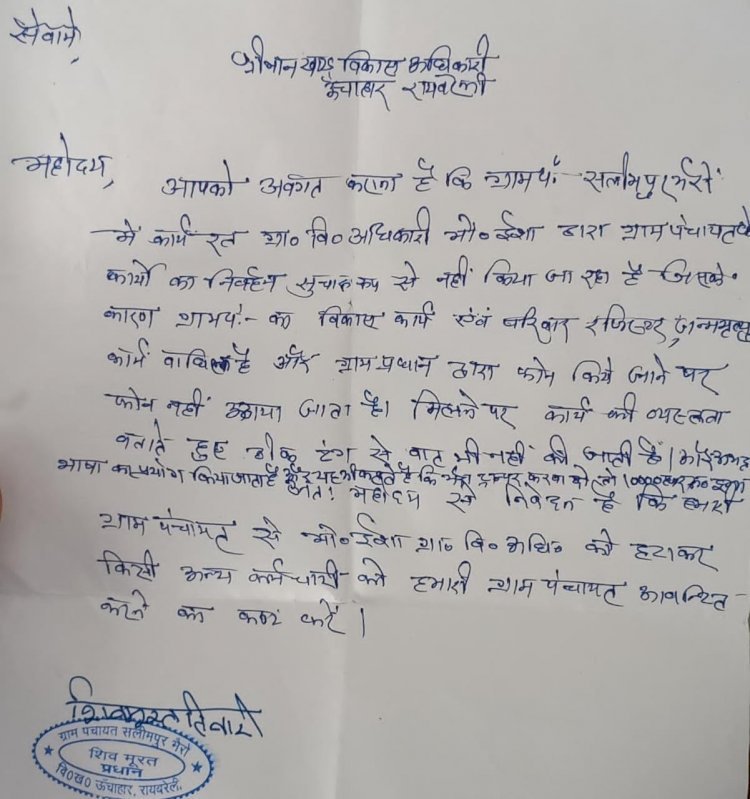 सेवामे,
श्रीमान खण्ड विकास अधिकारी
ऊँचाहार रायबरेली
महोदय,
आपको अवगत कराना है कि ग्राम पं॰ सलीमपुर भैरों
में कार्य रत ग्रा॰ वि॰ अधिकारी मो॰ ईशा द्वारा ग्राम पंचायत के
कार्यो का निर्वहन सुचारू रूप से नहीं किया जा रहा है जिसके
कारण ग्राम पं॰ का विकास कार्य एवं परिवार रजिस्टर, जन्म मृत्यु
कार्य बाधित है और ग्राम प्रधान द्वारा फोन किये जाने पर
फोन नहीं उठाया जाता है। मिलने पर कार्य की व्यस्तता
बताते हुए ठीक ढंग से बात भी नहीं की जाती है। और अभद्र
भाषा का प्रयोग किया जाता है और यह भी कहते है कि मेरा ट्रान्सफर करवा दो
अतः महोदय से निवेदन है कि हमारी
ग्राम पंचायत से मो॰ ईशा ग्रा॰ वि॰ अधि॰ को हटाकर
किसी अन्य कर्मचारी को हमारी ग्राम पंचायत आवन्टित
करने का कष्ट करें।
शिवमूरत तिवारी
ग्राम पंचायत सलीमपुर भैरो
शिव मूरत
प्रधान
वि0ख0 ऊँचाहार, रायबरेली.